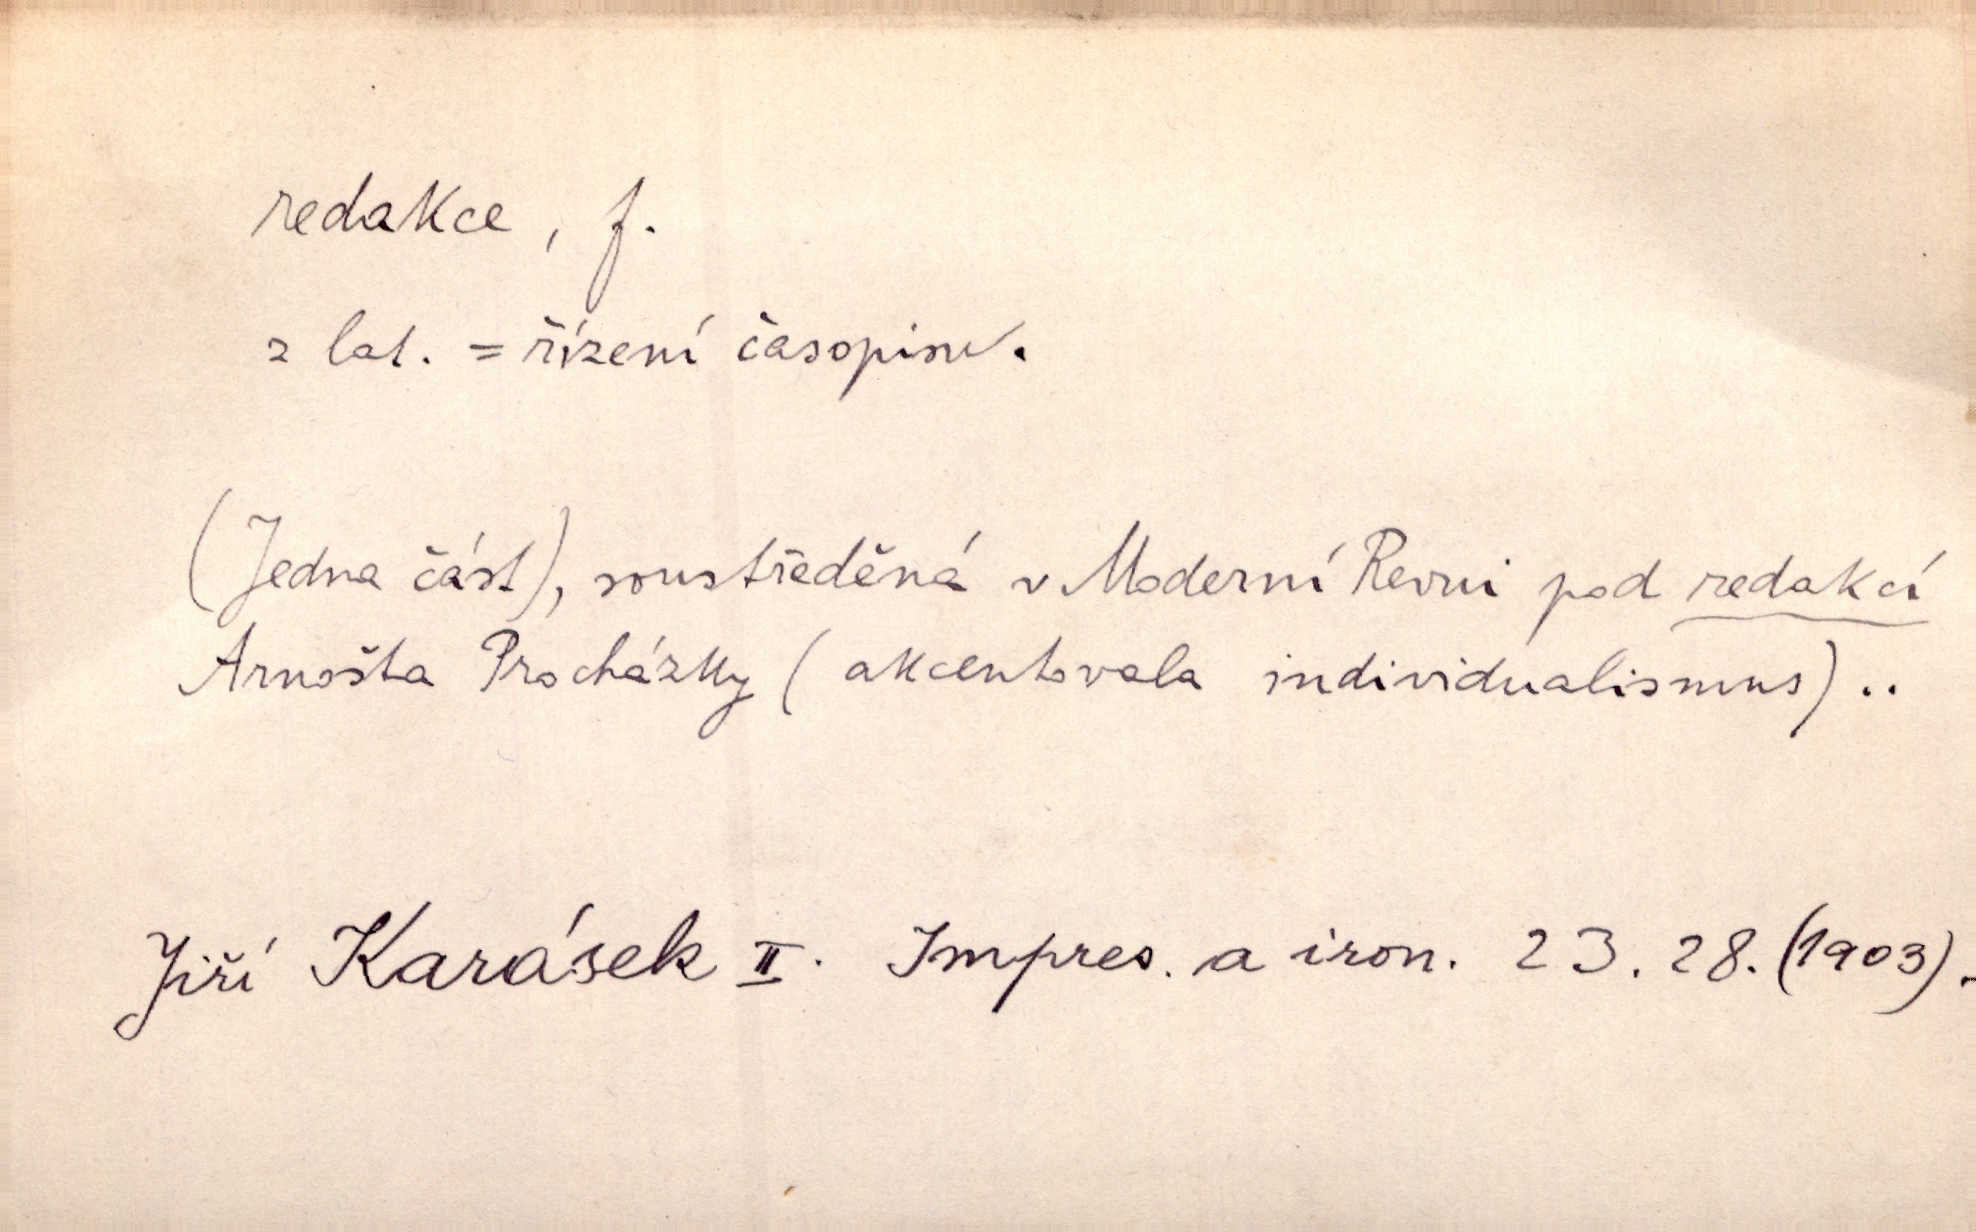 redakce, f.
z lat. = řízení časopisu.
(Jedna část), soustředěná v Moderní Revui pod redakcí
Arnošta Procházky (akcentovala individualismus)..
Jiří Karásek II. Impres. a iron. 23. 28. (1903).